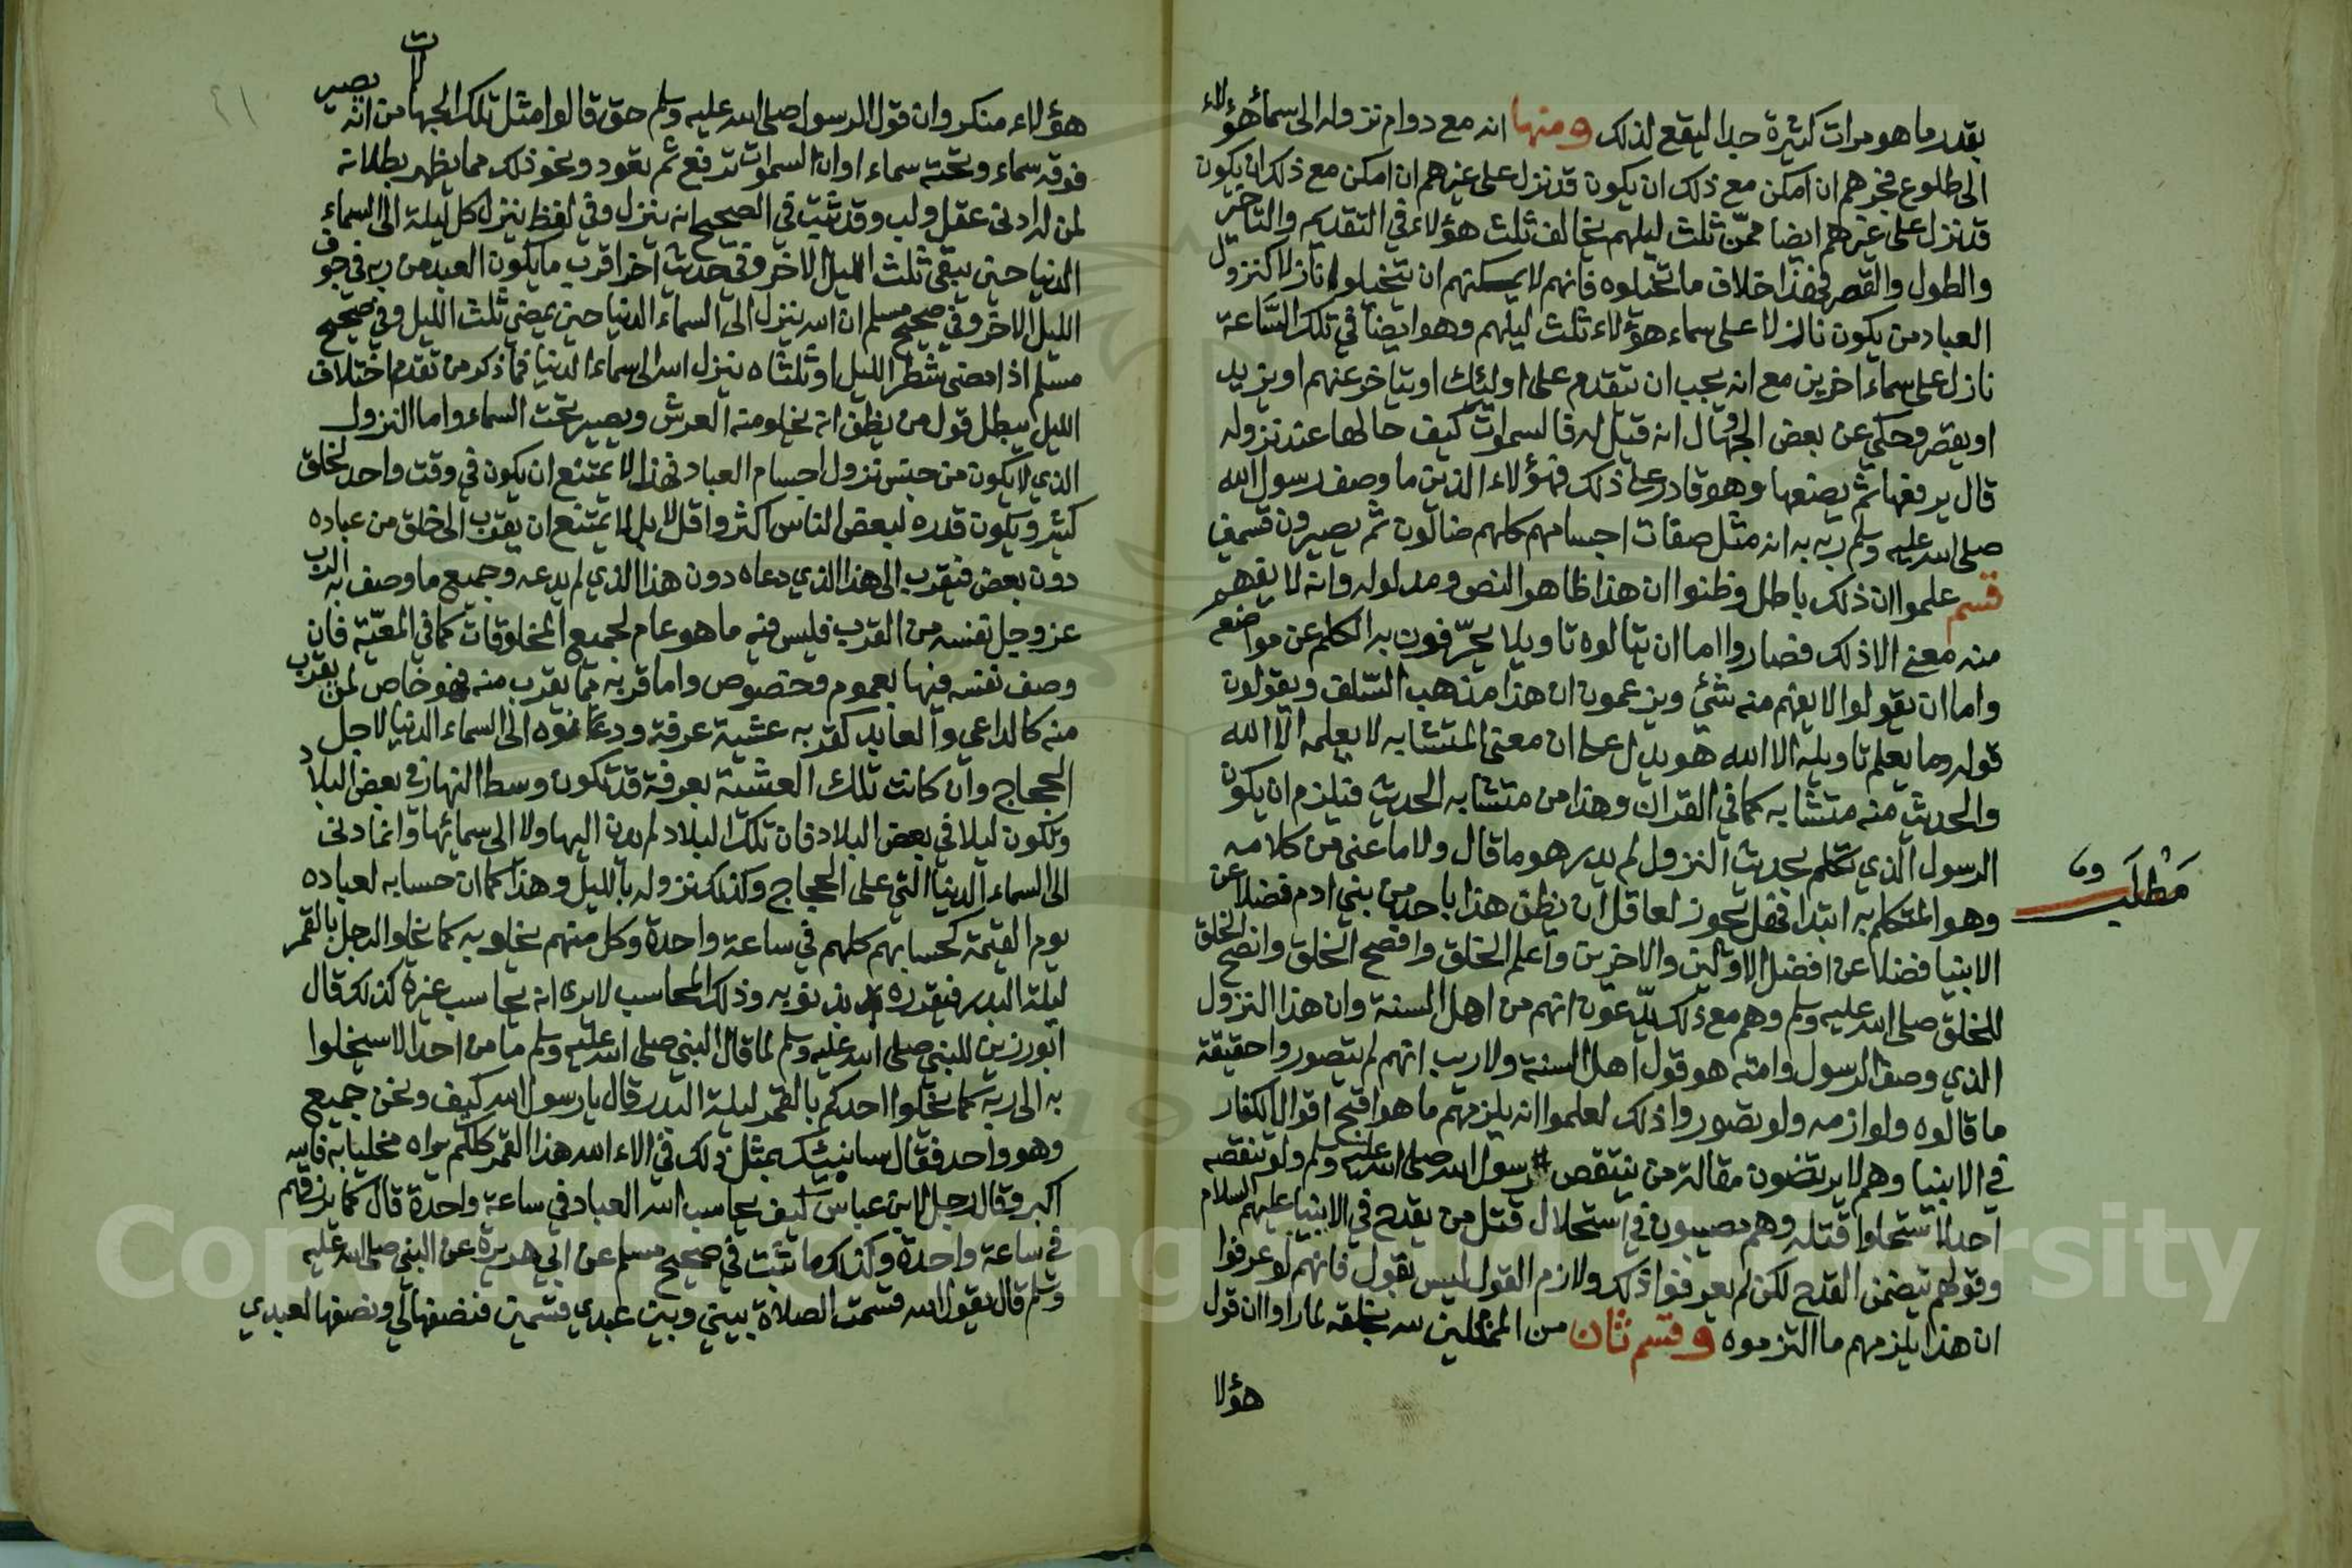 بقدر ما هو مرات كثيرة جدا ليقع لذلك ومنها انه مع دوام نزوله الى سماء هؤلاء
الى طلوع فجرهم ان امكن مع ذلك ان يكون قد نزل على غيرهم ان امكن مع ذلك ان يكون
قد نزل على غيرهم ايضا ممن ثلث ليلهم يخالف ثلث هؤلاء في التقديم والتاخير
والطول والقصر فهذا خلاف ما تخيلوه فانهم لا يمكنهم ان يتخيلوا نازلا كنزول
العباد من يكون نازلا على سماء هؤلاء ثلث ليلهم وهو ايضا في تلك الساعة
نازل على سماء اخرين مع انه يجب ان يتقدم على اولئك او يتاخر عنهم او يزيد
او يقصر وحكي عن بعض الجهال انه قيل له فالسموات كيف حالها عند نزوله
قال يرفعها ثم يضعها وهو قادر على ذلك فهؤلاء الذين ما وصف رسول الله
صلى الله عليه وسلم ربه به انه مثل صفات اجسامهم كلهم ضالون ثم يصيرون قسمين
قسم علموا ان ذلك باطل وظنوا ان هذا ظاهر النص ومدلوله وانه لا يفهم
منه معنى الا ذلك فصاروا اما ان يتالوه تاويلا يحرفون به الكلم عن مواضعه
واما ان يقولوا لا يفهم منه شئ ويزعمون ان هذا مذهب السلف ويقولون
قوله وما يعلم تاويله الا الله هو يدل على ان معنى المتشابه لا يعلمه الا الله
والحديث منه متشابه كما في القران وهذا من متشابه الحديث فيلزم ان يكون
الرسول الذي تكلم بحديث النزول لم يدر هو ما قال ولا ما عنى من كلامه
مطلب
وهو المتكلم به ابتدا فهل يجوز لعاقل ان يظن هذا باحد من بني ادم فضلا عن
الانبيا فضلا عن افضل الاولين والاخرين واعلم الخلق وافصح الخلق وانصح الخلق
للخلق صلى الله عليه وسلم وهم مع ذلك يدعون انهم من اهل السنة وان هذا النزول
الذي وصف الرسول وامته هو قول اهل السنة ولا ريب انهم لم يتصوروا حقيقة
ما قالوه ولوازمه ولو تصوروا ذلك لعلموا انه يلزمهم ما هو اقبح اقوال الكفار
في الانبيا وهم لا يرتضون مقالة من ينتقص رسول الله صلى الله عليه وسلم ولو تنقصه
احد لاستحلوا قتله وهم مصيبون في استحلال قتل من يقدح في الانبيا عليهم السلام
وقولهم يتضمن القدح لكن لم يعرفوا ذلك ولازم القول ليس بقول فانهم لو عرفوا
ان هذا يلزمهم ما التزموه وقسم ثان من الممثلين لله بخلقه لما راوا ان قول
هؤلا
هؤلاء منكر وان قول الرسول صلى الله عليه وسلم حق قالوا مثل تلك الجهالات من انه يصير
فوقه سماء وتحته سماء او ان السموات ترفع ثم يعود ونحو ذلك مما يظهر بطلانه
لمن له ادنى عقل ولب وقد ثبت في الصحيح انه ينزل وفي لفظ ينزل كل ليلة الى السماء
الدنيا حين يبقى ثلث الليل الاخر وفي حديث اخر اقرب ما يكون العبد من ربه في جوف
الليل الاخر وفي صحيح مسلم ان الله ينزل الى السماء الدنيا حين يمضي ثلث الليل وفي صحيح
مسلم اذا مضى شطر الليل او ثلثاه ينزل الله الى سماء الدنيا فما ذكر من تقدم اختلاف
الليل يبطل قول من يظن انه يخلو منه العرش ويصير تحت السماء واما النزول
الذي لا يكون من جنس نزول اجسام العباد فهذا لا يمتنع ان يكون في وقت واحد لخلق
كثير ويكون قدره لبعض الناس اكثر واقل لا بل لا يمتنع ان يقرب الى خلق من عباده
دون بعض فيقرب الى هذا الذي دعاه دون هذا الذي لم يدعه وجميع ما وصف به الرب
عز وجل نفسه من القرب فليس فيه ما هو عام لجميع المخلوقات كما في المعية فان
وصف نفسه فيها بعموم وخصوص واما قربه مما يقرب منه فهو خاص لمن يقرب
منه كالداعي والعابد كقربه عشية عرفة ودنوه الى السماء الدنيا لاجل
الحجاج وان كانت تلك العشية بعرفة قد تكون وسط النهار في بعض البلاد
وتكون ليلا في بعض البلاد فان تلك البلاد لم يدن اليها ولا الى سمائها وانما دنى
الى السماء الدنيا التي على الحجاج وكذلك نزوله بالليل وهذا كما ان حسابه لعباده
يوم القيمة كحسابهم كلهم في ساعة واحدة وكل منهم يخلو به كما يخلو الرجل بالقمر
ليلة البدر فيقرره بذنوبه وذلك المحاسب لا يرى انه يحاسب غيره كذلك قال
ابو رزين للنبي صلى الله عليه وسلم لما قال النبي صلى الله عليه وسلم ما من احد الا سيخلوا
به الى ربه كما يخلوا احدكم بالقمر ليلة البدر قال يا رسول الله كيف ونحن جميع
وهو واحد فقال سانبئك بمثل ذلك في الاء الله هذا القمر كلكم يراه مخليا به فالله
اكبر وقال رجل لابن عباس كيف يحاسب الله العباد في ساعة واحدة قال كما يرزقهم
في ساعة واحدة وكذلك ما ثبت في صحيح مسلم عن ابي هريرة عن النبي صلى الله عليه
وسلم قال يقول الله قسمت الصلاة بيني وبين عبدي قسمين فنصفها لي ونصفها لعبدي